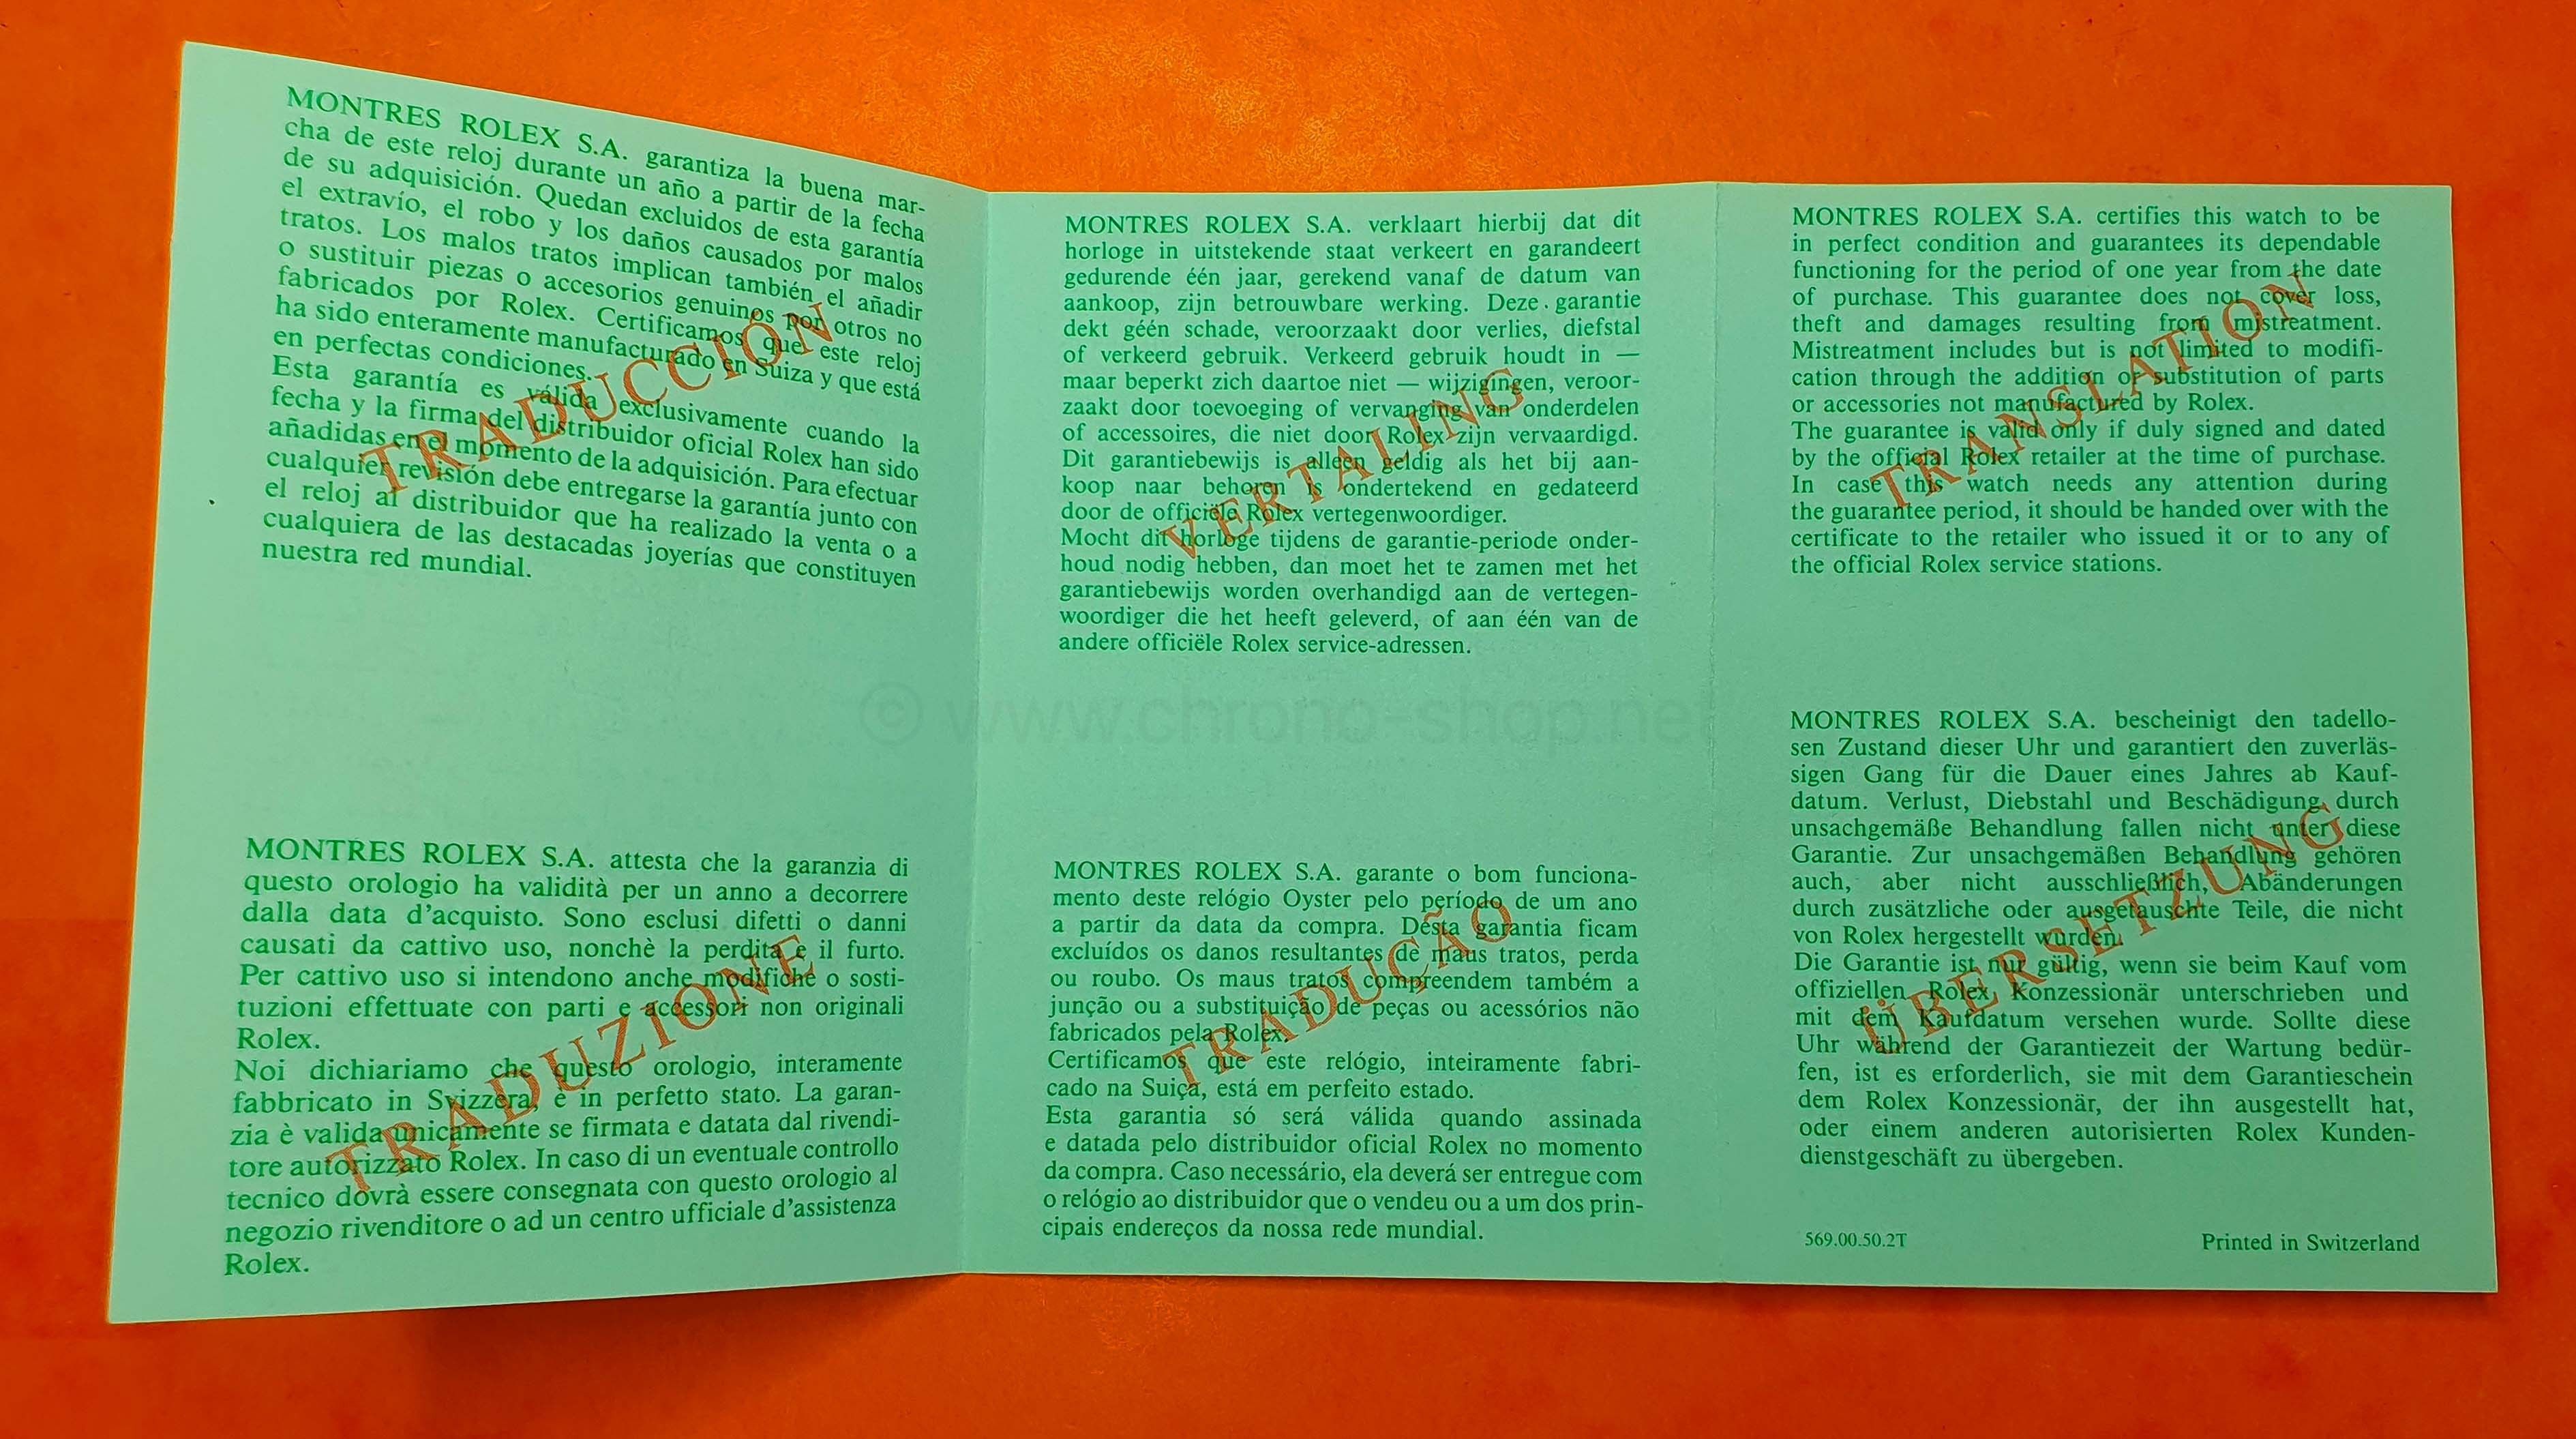 MONTRES ROLEX S.A. garantiza la buena mar-
cha de este reloj durante un año a partir de la fecha
de su adquisición. Quedan excluidos de esta garantía
el extravío, el robo y los daños causados por malos
tratos. Los malos tratos implican también el añadir
o sustituir piezas o accesorios genuinos por otros no
fabricados por Rolex. Certificamos que este reloj
ha sido enteramente manufacturado en Suiza y que está
en perfectas condiciones.
Esta garantía es válida exclusivamente cuando la
fecha y la firma del distribuidor oficial Rolex han sido
añadidas en el momento de la adquisición. Para efectuar
cualquier revisión debe entregarse la garantía junto con
el reloj al distribuidor que ha realizado la venta o a
cualquiera de las destacadas joyerías que constituyen
nuestra red mundial.
TRADUCCIÓN
MONTRES ROLEX S.A. attesta che la garanzia di
questo orologio ha validità per un anno a decorrere
dalla data d'acquisto. Sono esclusi difetti o danni
causati da cattivo uso, nonchè la perdita e il furto.
Per cattivo uso si intendono anche modifiche o sosti-
tuzioni effettuate con parti e accessori non originali
Rolex.
Noi dichiariamo che questo orologio, interamente
fabbricato in Svizzera, è in perfetto stato. La garan-
zia è valida unicamente se firmata e datata dal rivendi-
tore autorizzato Rolex. In caso di un eventuale controllo
tecnico dovrà essere consegnata con questo orologio al
negozio rivenditore o ad un centro ufficiale d'assistenza
Rolex.
TRADUZIONE
MONTRES ROLEX S.A. verklaart hierbij dat dit
horloge in uitstekende staat verkeert en garandeert
gedurende één jaar, gerekend vanaf de datum van
aankoop, zijn betrouwbare werking. Deze garantie
dekt géén schade, veroorzaakt door verlies, diefstal
of verkeerd gebruik. Verkeerd gebruik houdt in —
maar beperkt zich daartoe niet — wijzigingen, veroor-
zaakt door toevoeging of vervanging van onderdelen
of accessoires, die niet door Rolex zijn vervaardigd.
Dit garantiebewijs is alleen geldig als het bij aan-
koop naar behoren is ondertekend en gedateerd
door de officiële Rolex vertegenwoordiger.
Mocht dit horloge tijdens de garantie-periode onder-
houd nodig hebben, dan moet het te zamen met het
garantiebewijs worden overhandigd aan de vertegen-
woordiger die het heeft geleverd, of aan één van de
andere officiële Rolex service-adressen.
VERTALING
© www.chrono-shop.net
MONTRES ROLEX S.A. garante o bom funciona-
mento deste relógio Oyster pelo período de um ano
a partir da data da compra. Desta garantia ficam
excluídos os danos resultantes de maus tratos, perda
ou roubo. Os maus tratos compreendem também a
junção ou a substituição de peças ou acessórios não
fabricados pela Rolex.
Certificamos que este relógio, inteiramente fabri-
cado na Suiça, está em perfeito estado.
Esta garantia só será válida quando assinada
e datada pelo distribuidor oficial Rolex no momento
da compra. Caso necessário, ela deverá ser entregue com
o relógio ao distribuidor que o vendeu ou a um dos prin-
cipais endereços da nossa rede mundial.
TRADUÇÃO
MONTRES ROLEX S.A. certifies this watch to be
in perfect condition and guarantees its dependable
functioning for the period of one year from the date
of purchase. This guarantee does not cover loss,
theft and damages resulting from mistreatment.
Mistreatment includes but is not limited to modifi-
cation through the addition or substitution of parts
or accessories not manufactured by Rolex.
The guarantee is valid only if duly signed and dated
by the official Rolex retailer at the time of purchase.
In case this watch needs any attention during
the guarantee period, it should be handed over with the
certificate to the retailer who issued it or to any of
the official Rolex service stations.
TRANSLATION
MONTRES ROLEX S.A. bescheinigt den tadello-
sen Zustand dieser Uhr und garantiert den zuverläs-
sigen Gang für die Dauer eines Jahres ab Kauf-
datum. Verlust, Diebstahl und Beschädigung durch
unsachgemäße Behandlung fallen nicht unter diese
Garantie. Zur unsachgemäßen Behandlung gehören
auch, aber nicht ausschließlich, Abänderungen
durch zusätzliche oder ausgetauschte Teile, die nicht
von Rolex hergestellt wurden.
Die Garantie ist nur gültig, wenn sie beim Kauf vom
offiziellen Rolex Konzessionär unterschrieben und
mit dem Kaufdatum versehen wurde. Sollte diese
Uhr während der Garantiezeit der Wartung bedür-
fen, ist es erforderlich, sie mit dem Garantieschein
dem Rolex Konzessionär, der ihn ausgestellt hat,
oder einem anderen autorisierten Rolex Kunden-
dienstgeschäft zu übergeben.
ÜBERSETZUNG
569.00.50.2T
Printed in Switzerland